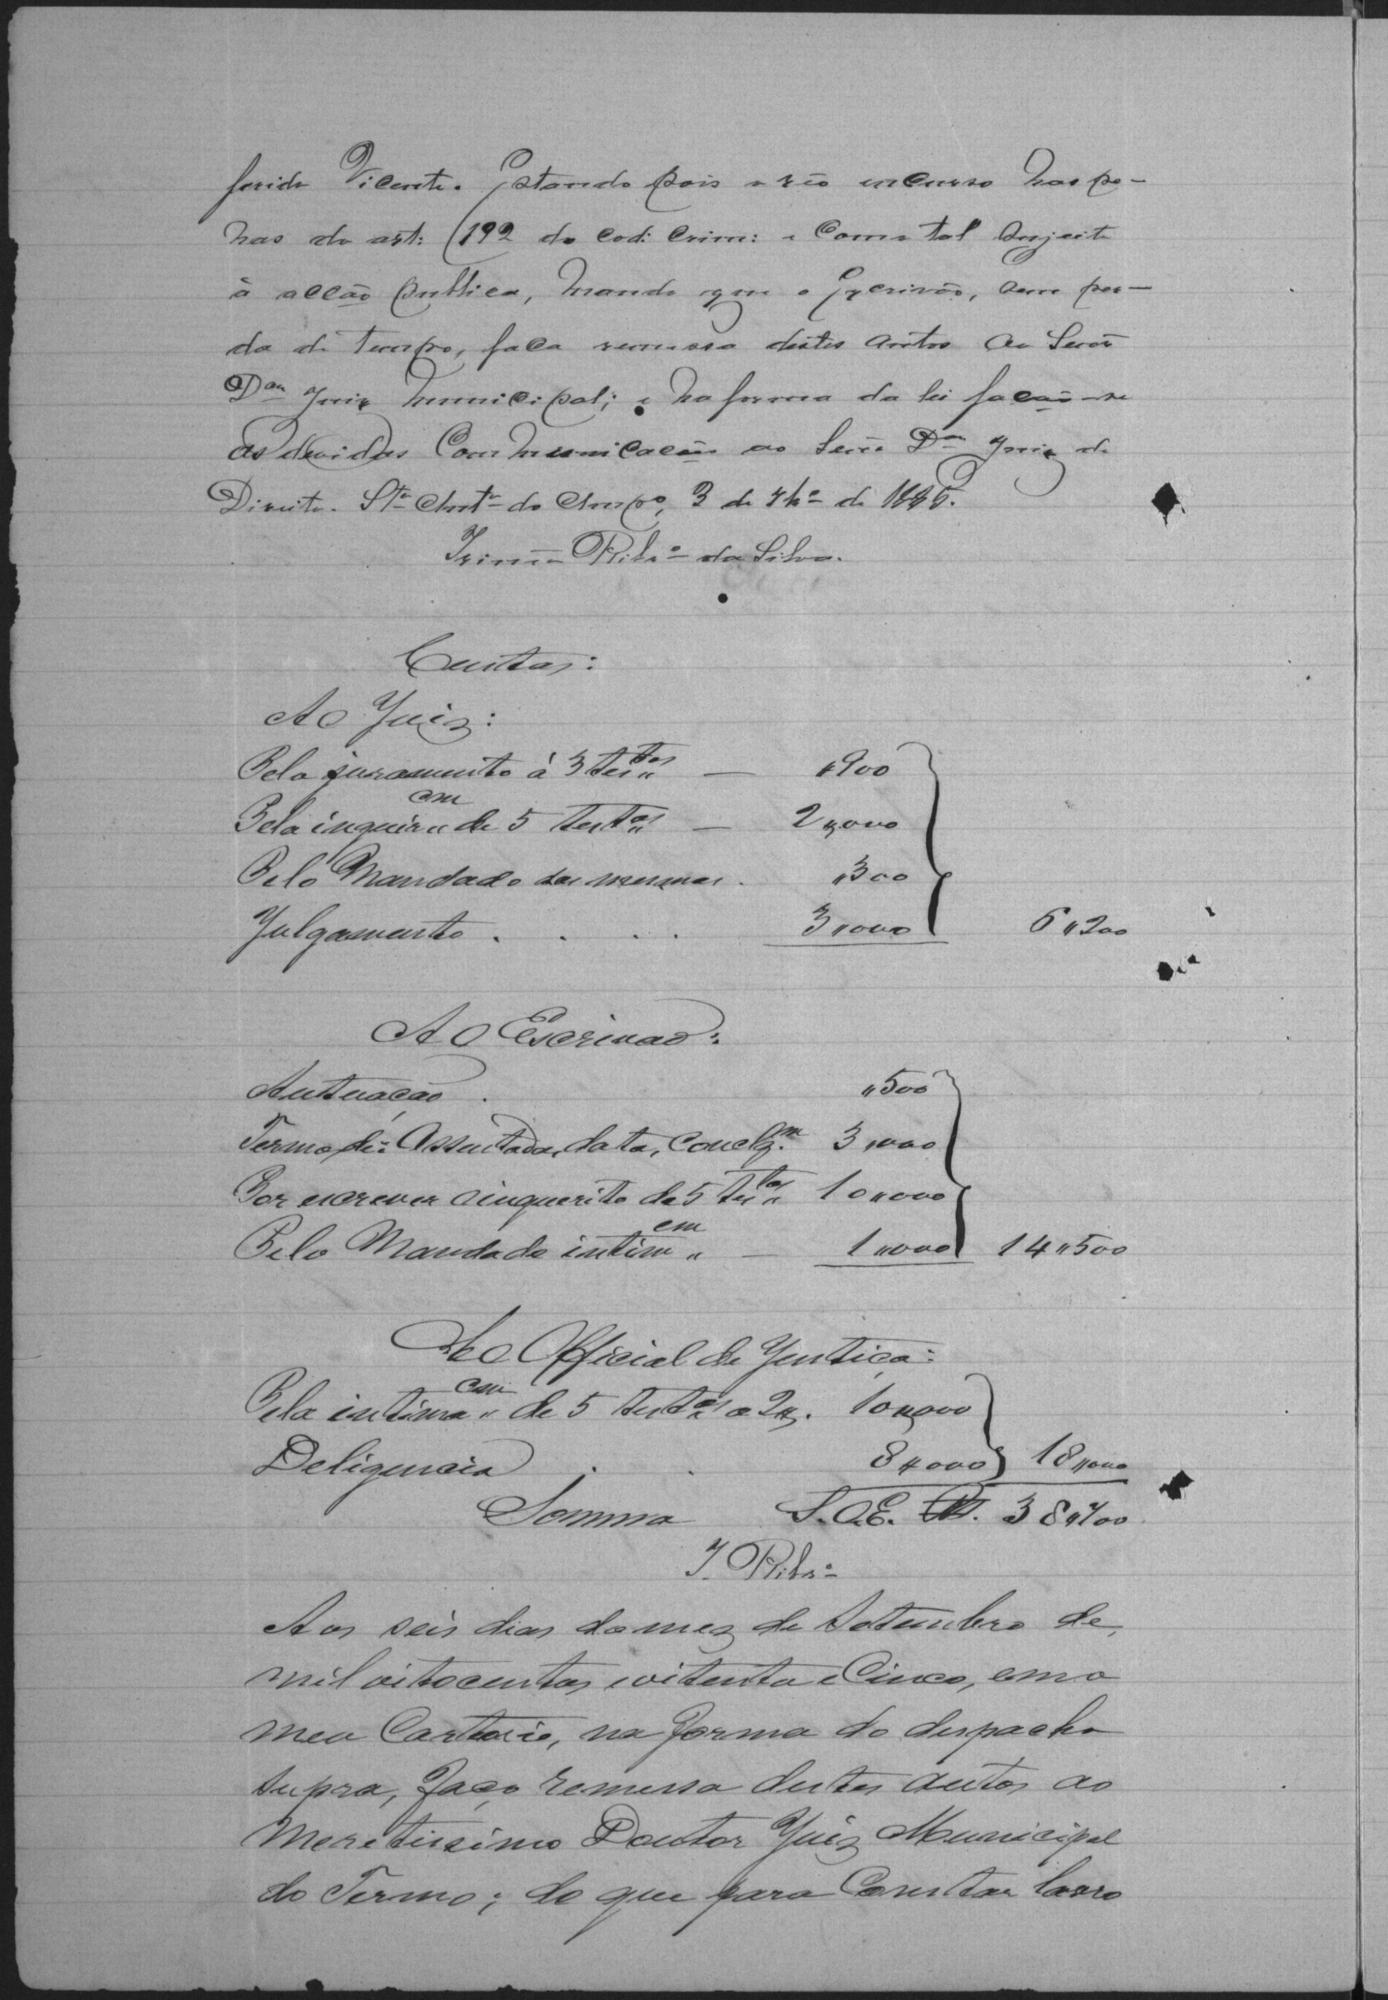 ferido Vicente. Estando pois o réo incurso nas pe-
nas do art: 192 do cod: Crim: e como tal sujeito
à acção publica, mando que o Escrivão, sem per-
da de tempo, faça remessa destes autos ao Senr
Dor Juiz Municipal; e na forma da lei facão-se
as devidas Communicacões ao Senr Dor Juiz de
Direito. Sta Anta do Ampo, 3 de 7bro de 1885.
Ribro da Silva.
Custas:
Ao Juiz:
Pelo juramento á 3 testas — "900
Pela inquir"em de 5 testas — 2"000
Pelo Mandado das mesmas. "300
Julgamento . . . . 3"000 6"200
Ao Escrivão:
Autuação . "500
Termo de: Assentada, data, conclzm. 3"000
Por escrever o inquerito de 5 testas 10"000
Pelo Mandado intim"em — 1"000 14"500
Ao Official de Justiça:
Pela intima"em de 5 testas a 2". 10"000
Deligencia . . 8"000 18"000
Somma S.O.E. 38"700
J. Ribro
Aos seis dias do mez de Setembro de
mil oitocentos e oitenta e Cinco, em o
meu Cartorio, na forma do despacho
supra, faço remessa destes autos ao
Meretissimo Doutor Juiz Municipal
do Termo; do que para Constar lavro